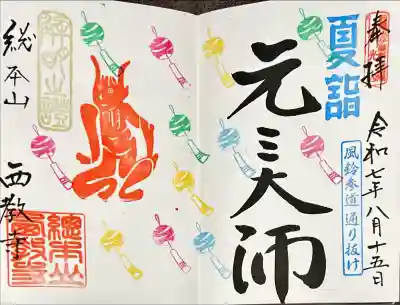 奉拝
夏詣
元三大師
令和七年八月十五日
風鈴参道通り抜け
総本山
西教寺